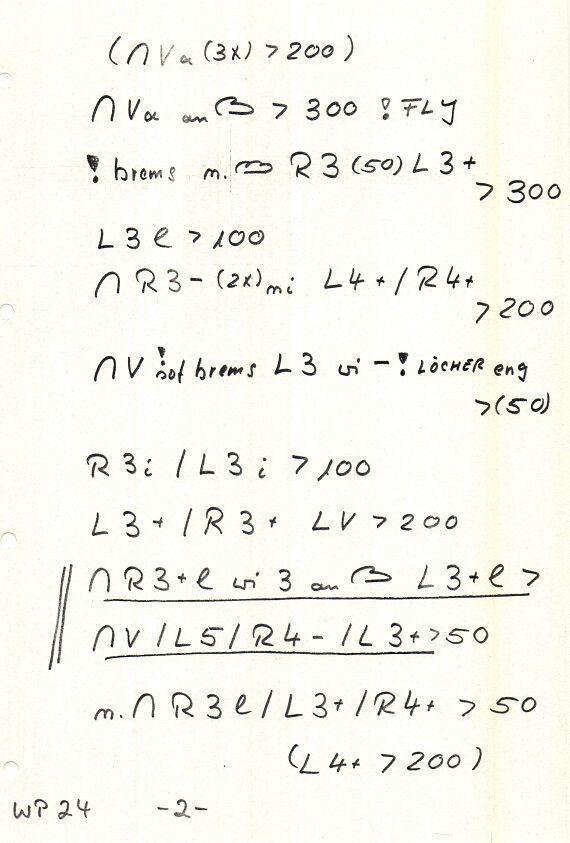 (∩ Vα (3x) > 200)
∩ Vα an > 300 ! FLY
! brems m. R3 (50) L3+
> 300
L3 l > 100
∩ R3- (2x) mi L4+ / R4+
> 200
∩ V ! sof brems L3 wi - ! LÖCHER eng
> (50)
R3i / L3i > 100
L3+ / R3+ LV > 200
∩ R3+ l wi 3 an L3+ l >
∩ V / L5 / R4- / L3+ > 50
m. ∩ R3 l / L3+ / R4+ > 50
(L4+ > 200)
WP 24 -2-